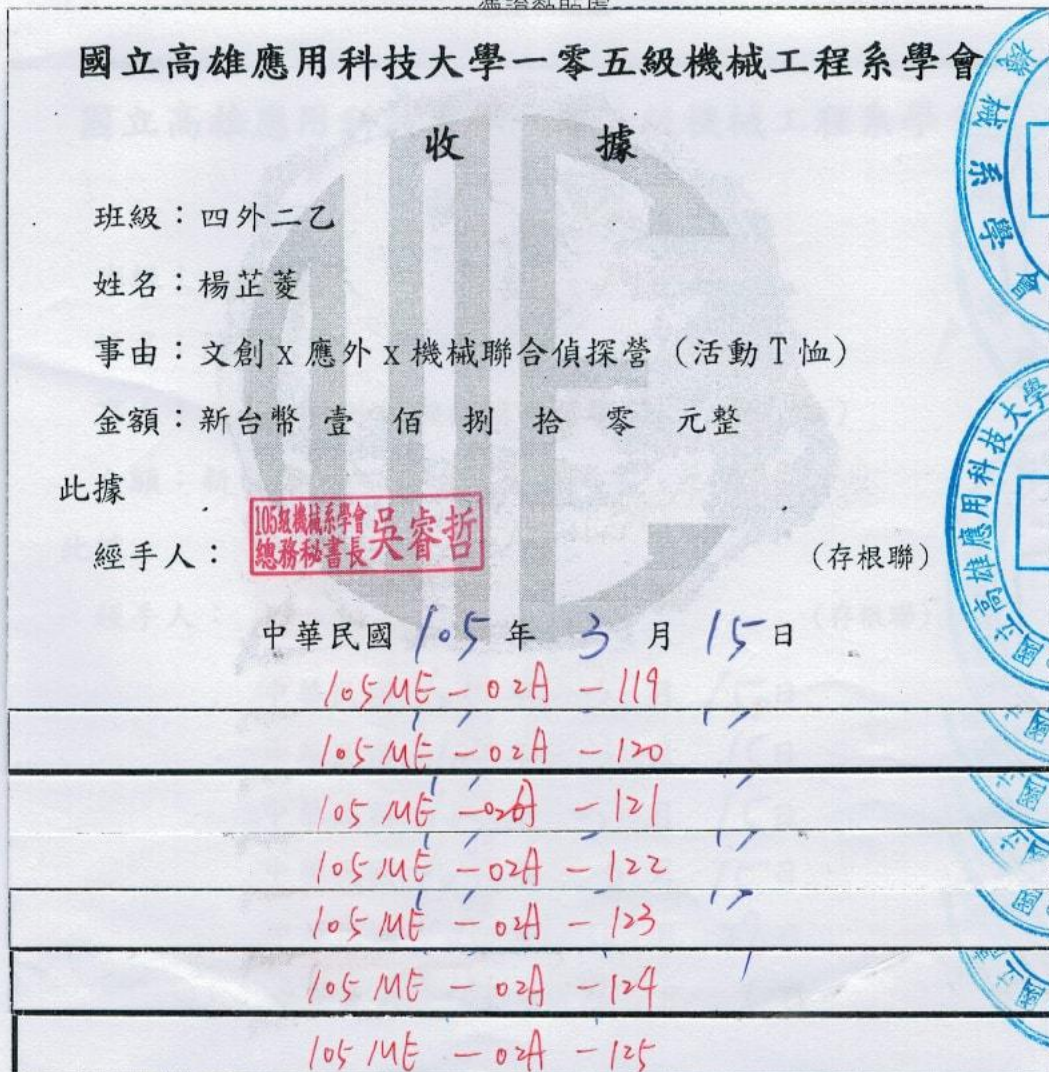 憑證黏貼處
國立高雄應用科技大學一零五級機械工程系學會
收 據
班級：四外二乙
姓名：楊芷菱
事由：文創x應外x機械聯合偵探營（活動T恤）
金額：新台幣 壹 佰 捌 拾 零 元整
此據
經手人：
105級機械系學會
總務秘書長
吳睿哲
(存根聯)
中華民國 105 年 3 月 15 日
105ME-02A-119
105ME-02A-120
105ME-02A-121
105ME-02A-122
105ME-02A-123
105ME-02A-124
105ME-02A-125
機械系學會
國立高雄應用科技大學